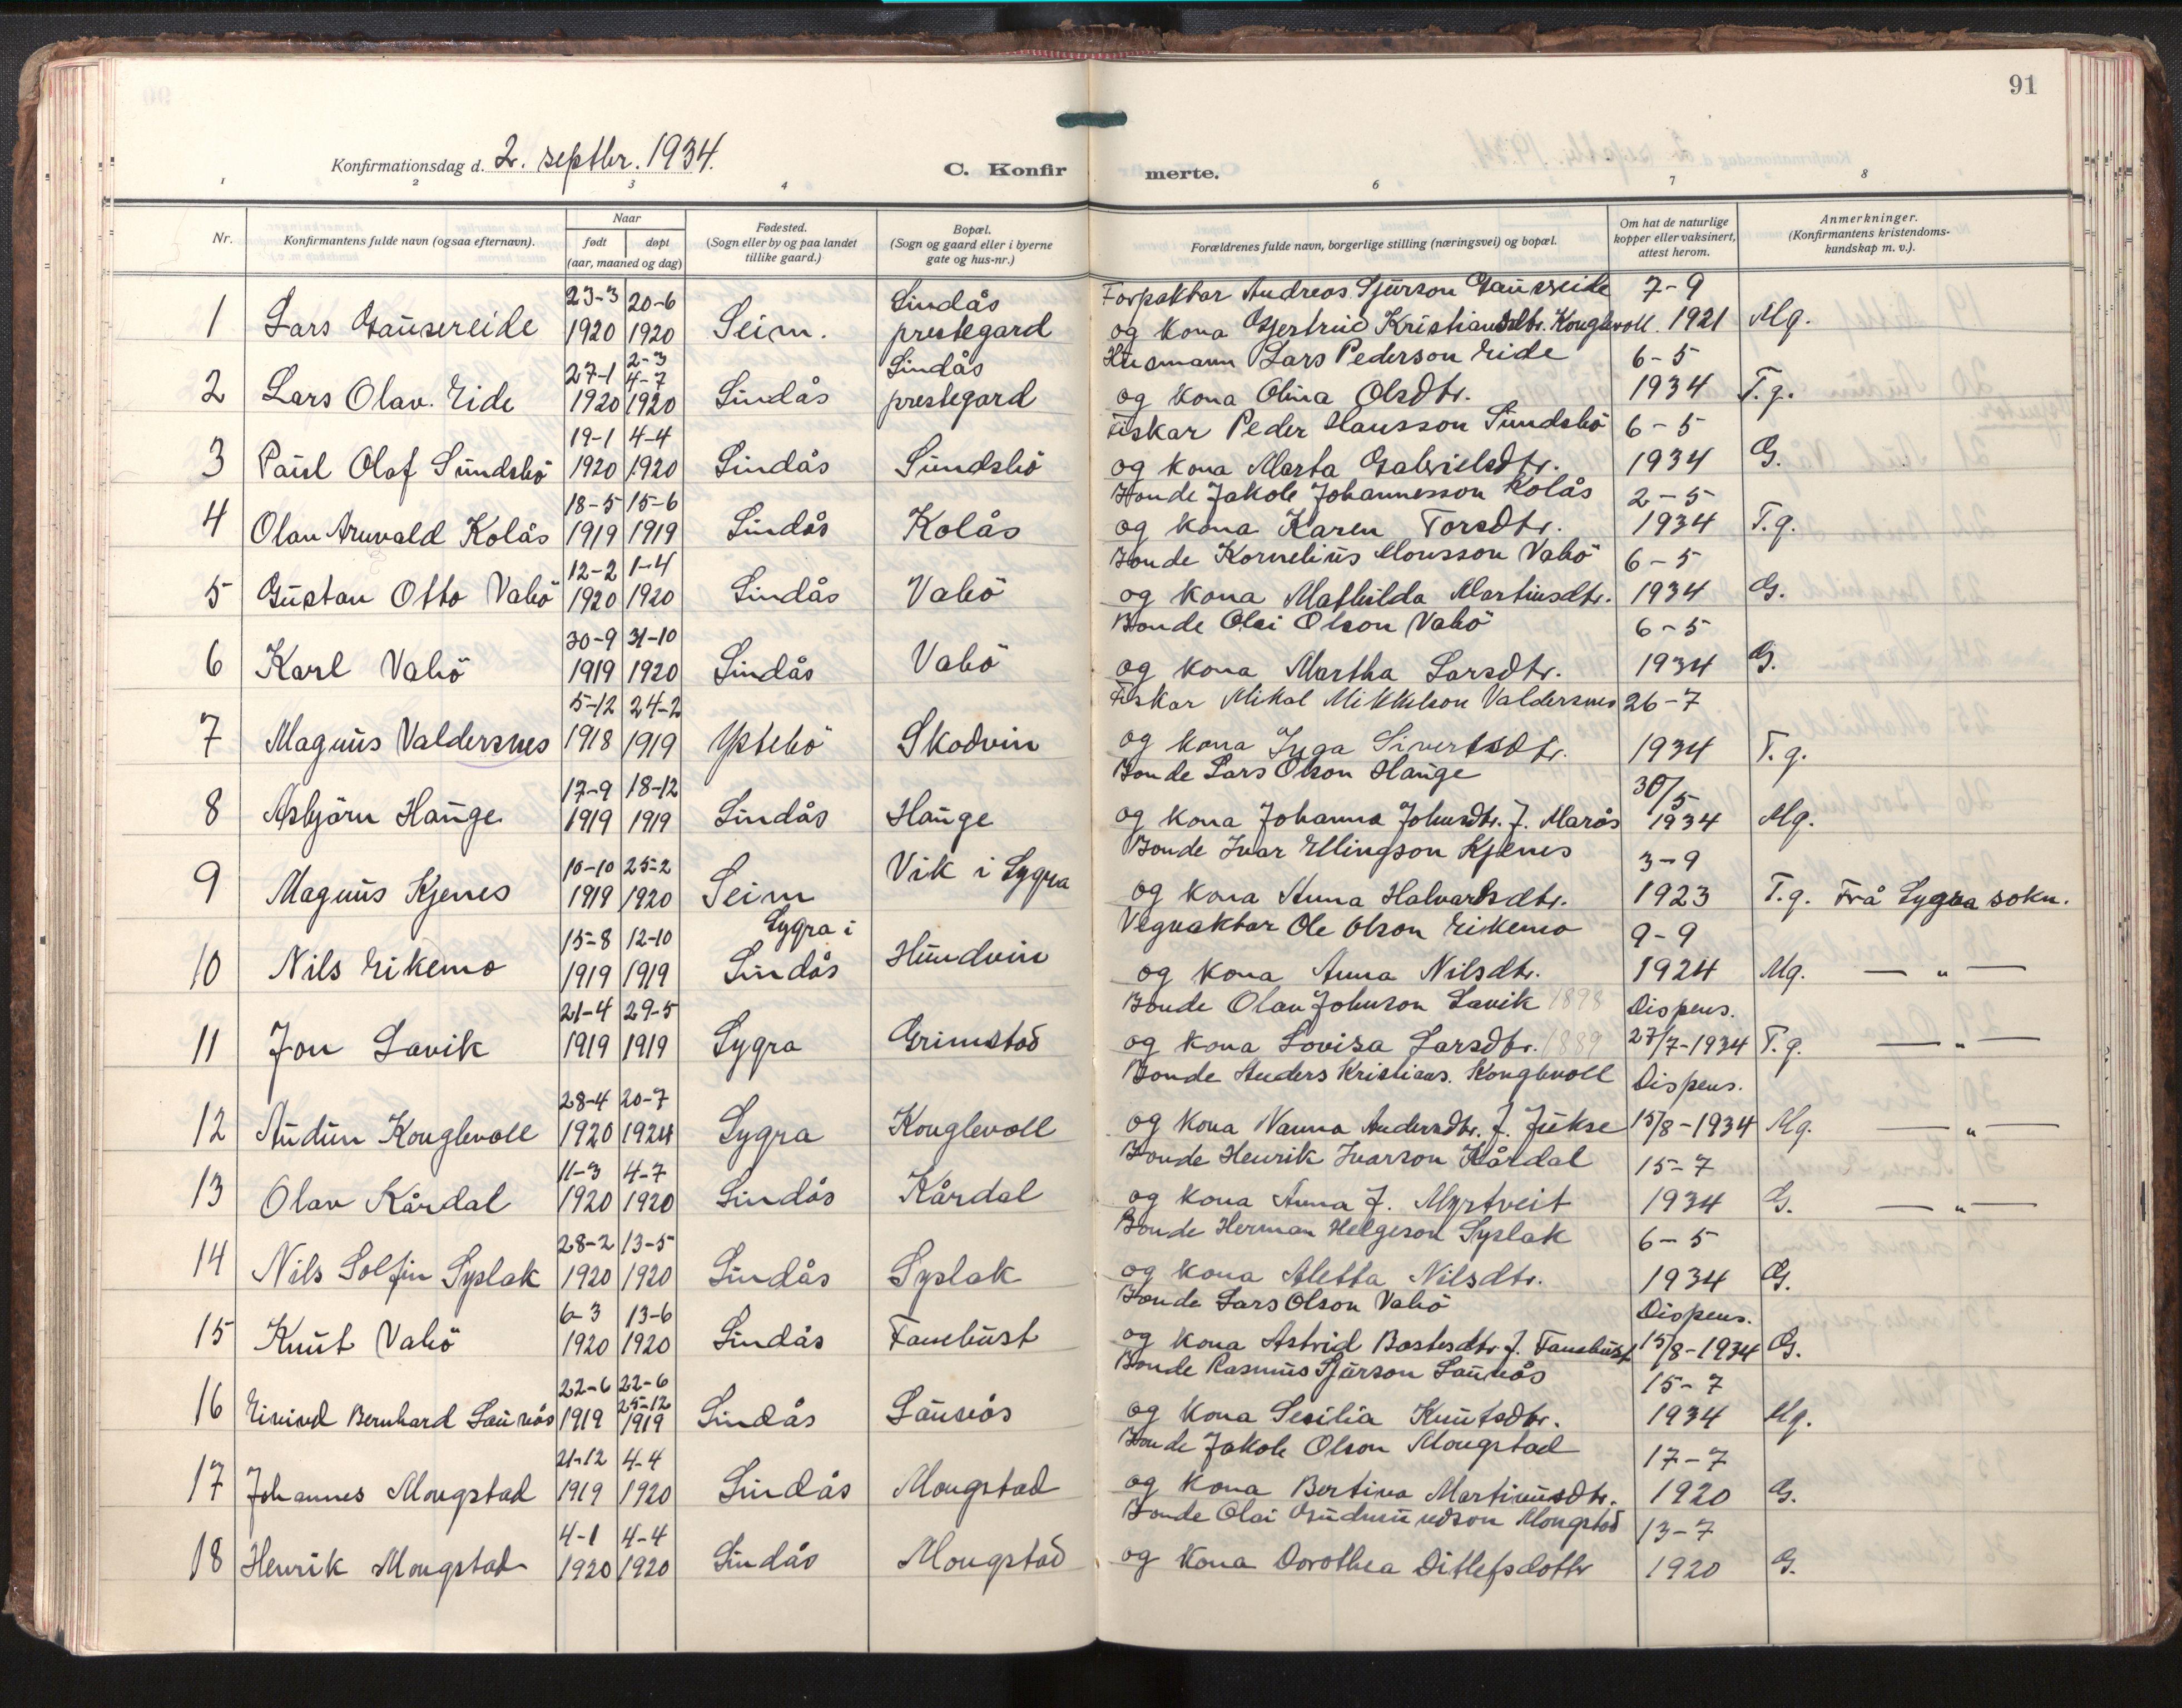 91
Konfirmationsdag d. 2. septbr. 1934.
C. Konfirmerte.
1 2 3 4 5 6 7 8
Nr. | Konfirmantens fulde navn (ogsaa efternavn). | Naar født | døpt (aar, maaned og dag) | Fødested. (Sogn eller by og paa landet tillike gaard.) | Bopæl. (Sogn og gaard eller i byerne gate og hus-nr.) | Forældrenes fulde navn, borgerlige stilling (næringsvei) og bopæl. | Om hat de naturlige kopper eller vaksinert, attest herom. | Anmerkninger. (Konfirmantens kristendoms-kundskap m. v.).
23-3 | 20-6 | Lindås | Forpaktar Andreas Sjurson Gausereide | 7-9
1 | Lars Gausereide | 1920 | 1920 | Seim. | prestegard | og kona Gjertrud Kristiansdtr. Konglevoll. | 1921 | Mg.
27-1 | 2-3 4-7 | Lindås | Husmann Lars Pederson Eide | 6-5
2 | Lars Olav Eide | 1920 | 1920 | Lindås | prestegard | og kona Olina Olsdtr. | 1934 | T.g.
19-1 | 4-4 | Fiskar Peder Hansson Sundsbö | 6-5
3 | Paul Olaf Sundsbö | 1920 | 1920 | Lindås | Sundsbö | og kona Marta Gabrielsdtr. | 1934 | G.
18-5 | 15-6 | Bonde Jakob Johannesson Kolås | 2-5
4 | Olav Arnvald Kolås | 1919 | 1919 | Lindås | Kolås | og kona Karen Torsdtr. | 1934 | T.g.
12-2 | 1-4 | Bonde Kornelius Monsson Vabö | 6-5
5 | Gustav Otto Vabö | 1920 | 1920 | Lindås | Vabö | og kona Mathilda Martinsdtr. | 1934 | G.
30-9 | 31-10 | Bonde Olai Olson Vabö | 6-5
6 | Karl Vabö | 1919 | 1920 | Lindås | Vabö | og kona Martha Larsdtr. | 1934 | G.
5-12 | 24-2 | Fiskar Mikal Mikkelson Valdersnes | 26-7
7 | Magnus Valdersnes | 1918 | 1919 | Ystebö | Skodvin | og kona Inga Sivertsdtr. | 1934 | T.g.
17-9 | 18-12 | Bonde Lars Olson Hauge | 30/5
8 | Asbjörn Hauge | 1919 | 1919 | Lindås | Hauge | og kona Johanna Johnsdtr. f. Marås | 1934 | Mg.
10-10 | 25-2 | Bonde Ivar Ellingson Kjenes | 3-9
9 | Magnus Kjenes | 1919 | 1920 | Seim | Vik i Lygra | og kona Anna Halvardsdtr. | 1923 | T.g. Frå Lygra sokn.
15-8 | 12-10 | Lygra i | Vegvaktar Ole Olson Eikemo | 9-9
10 | Nils Eikemo | 1919 | 1919 | Lindås | Hundvin | og kona Anna Nilsdtr. | 1924 | Mg. — " —
21-4 | 29-5 | Bonde Olav Johnson Lavik 1898 | Dispens.
11 | Jon Lavik | 1919 | 1919 | Lygra | Grimstad | og kona Lovisa Larsdtr. 1889 | 27/7-1934 | T.g. — " —
28-4 | 20-7 | Bonde Anders Kristians. Konglevoll | Dispens.
12 | Audun Konglevoll | 1920 | 1924 | Lygra | Konglevoll | og kona Nanna Andersdtr. f. Fukse | 15/8-1934 | Mg. — " —
11-3 | 4-7 | Bonde Henrik Ivarson Kårdal | 15-7
13 | Olav Kårdal | 1920 | 1920 | Lindås | Kårdal | og kona Anna f. Myrtveit | 1934 | G. — " —
28-2 | 13-5 | Bonde Herman Helgeson Syslak | 6-5
14 | Nils Solfin Syslak | 1920 | 1920 | Lindås | Syslak | og kona Aletta Nilsdtr. | 1934 | G.
6-3 | 13-6 | Bonde Lars Olson Vabö | Dispens.
15 | Knut Vabö | 1920 | 1920 | Lindås | Fanebust | og kona Astrid Bastesdtr. f. Fanebust | 15/8-1934 | G.
22-6 | 22-6 25-12 | Bonde Rasmus Sjurson Launås | 15-7
16 | Eivind Bernhard Launås | 1919 | 1919 | Lindås | Launås | og kona Sesilia Knutsdtr. | 1934 | Mg.
21-12 | 4-4 | Bonde Jakob Olson Mongstad | 17-7
17 | Johannes Mongstad | 1919 | 1920 | Lindås | Mongstad | og kona Bertina Martinusdtr. | 1920 | G.
4-1 | 4-4 | Bonde Olai Gudmundson Mongstad | 13-7
18 | Henrik Mongstad | 1920 | 1920 | Lindås | Mongstad | og kona Dorothea Ditlefsdottr | 1920 | G.